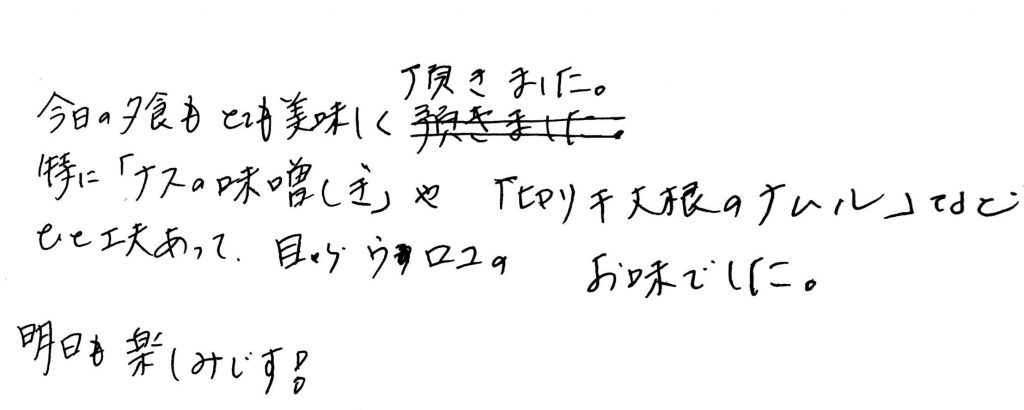 今日の夕食もとても美味しく頂きました。
特に「ナスの味噌しぎ」や「切り干大根のナムル」など
ひと工夫あって、目からウロコの お味でした。
明日も楽しみです!